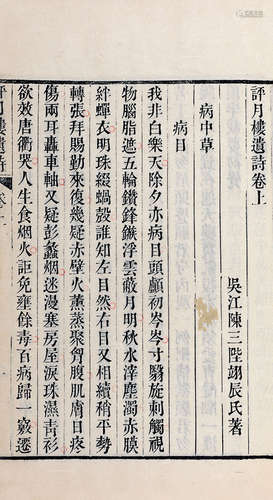 評月樓遺詩卷上
吳江陳三陛翊辰氏著
病中草
病目
我非白樂天除夕亦病目頭顱初岑岑寸翳旋刺觸視
物腦脂遮五輪鑽鋒鏃浮雲蔽月明秋水滓塵濁赤膜
絆蟬衣明珠綴蝸殼誰知左目然右目又相續稍平勢
轉張拜賜勒來復幾疑赤壁火薰蒸聚胷腹肌膚日疼
傷兩耳轟車軸又疑彭蠡烟迷漫塞房屋淚珠濕青衫
欲效唐衢哭人生食烟火詎免罹餘毒百病歸一竅遷
評月樓遺詩
卷上